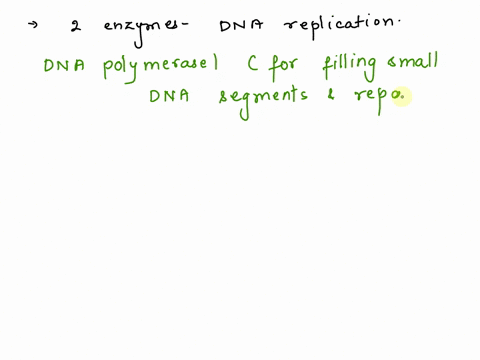 → 2 enzymes- DNA replication.
DNA polymerase1 ( for filling small
DNA segments & repa